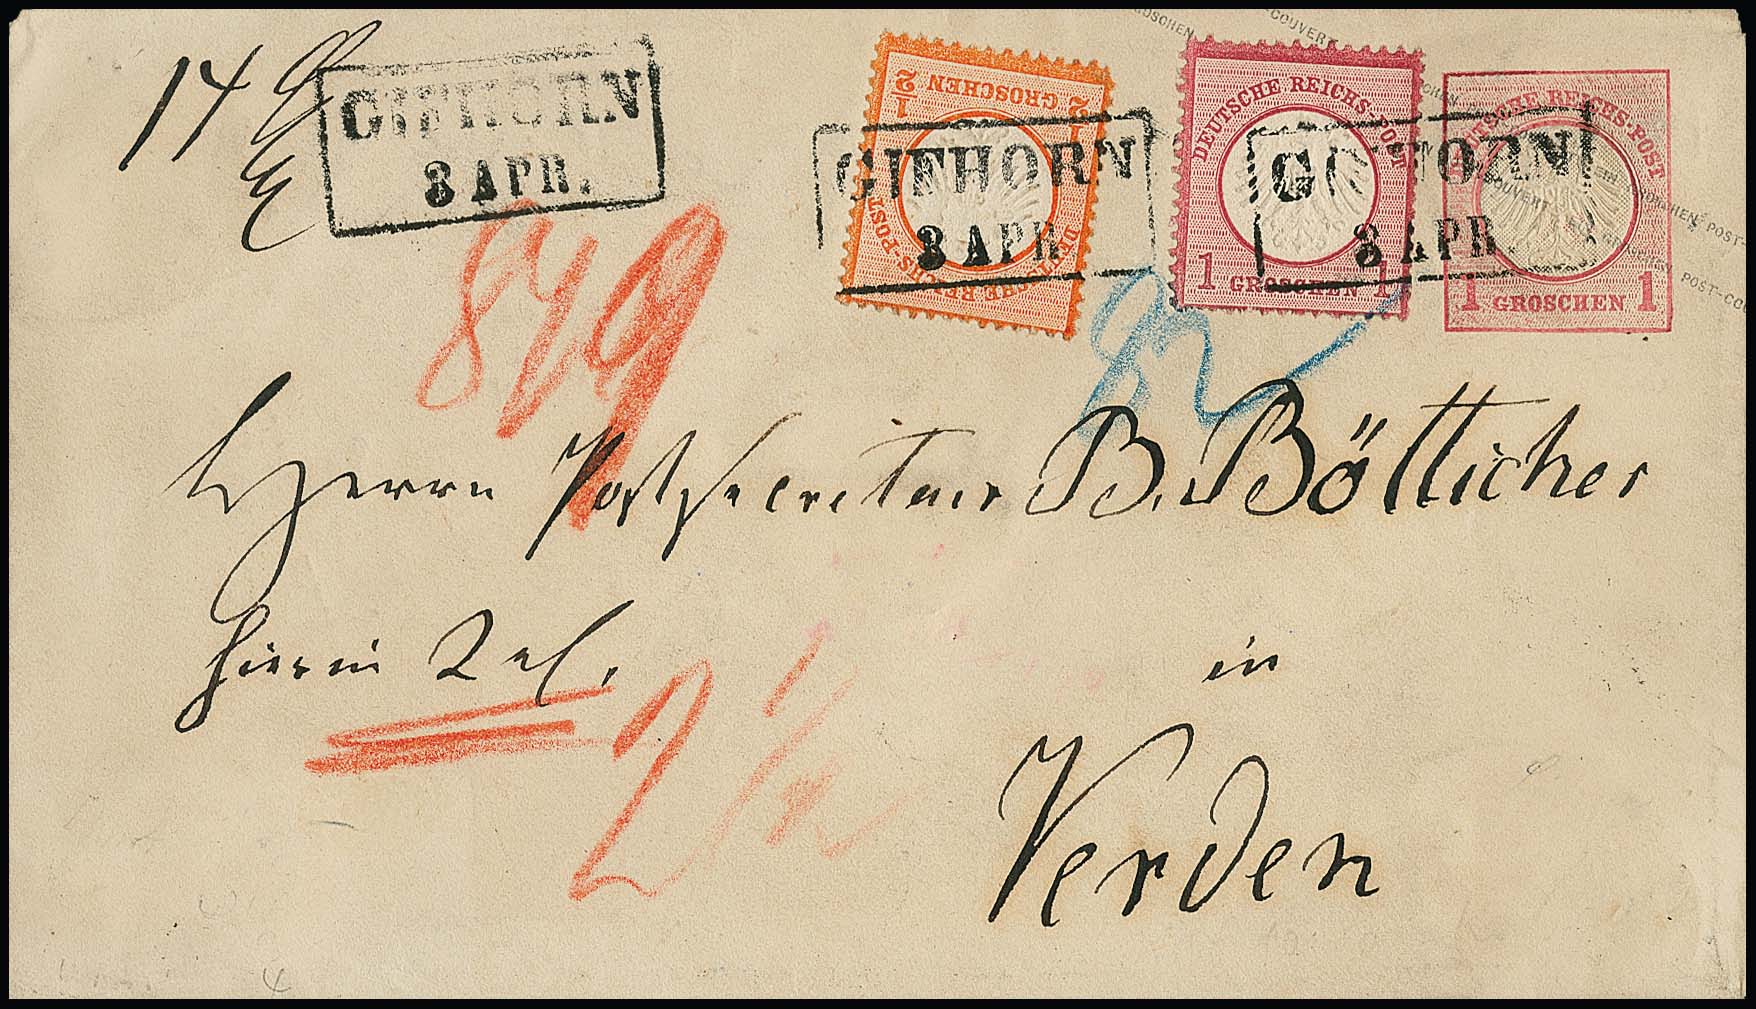 GIFHORN
8 APR.
1/2 GROSCHEN 1/2
DEUTSCHE REICHS-POST
GIFHORN
8 APR
DEUTSCHE REICHS-POST
1 GROSCHEN 1
GIFHORN
8 APR
DEUTSCHE REICHS-POST
1 GROSCHEN 1
849
Herrn Postsecretair B. Bötticher
hierin 2
2 1/2
in
Verden